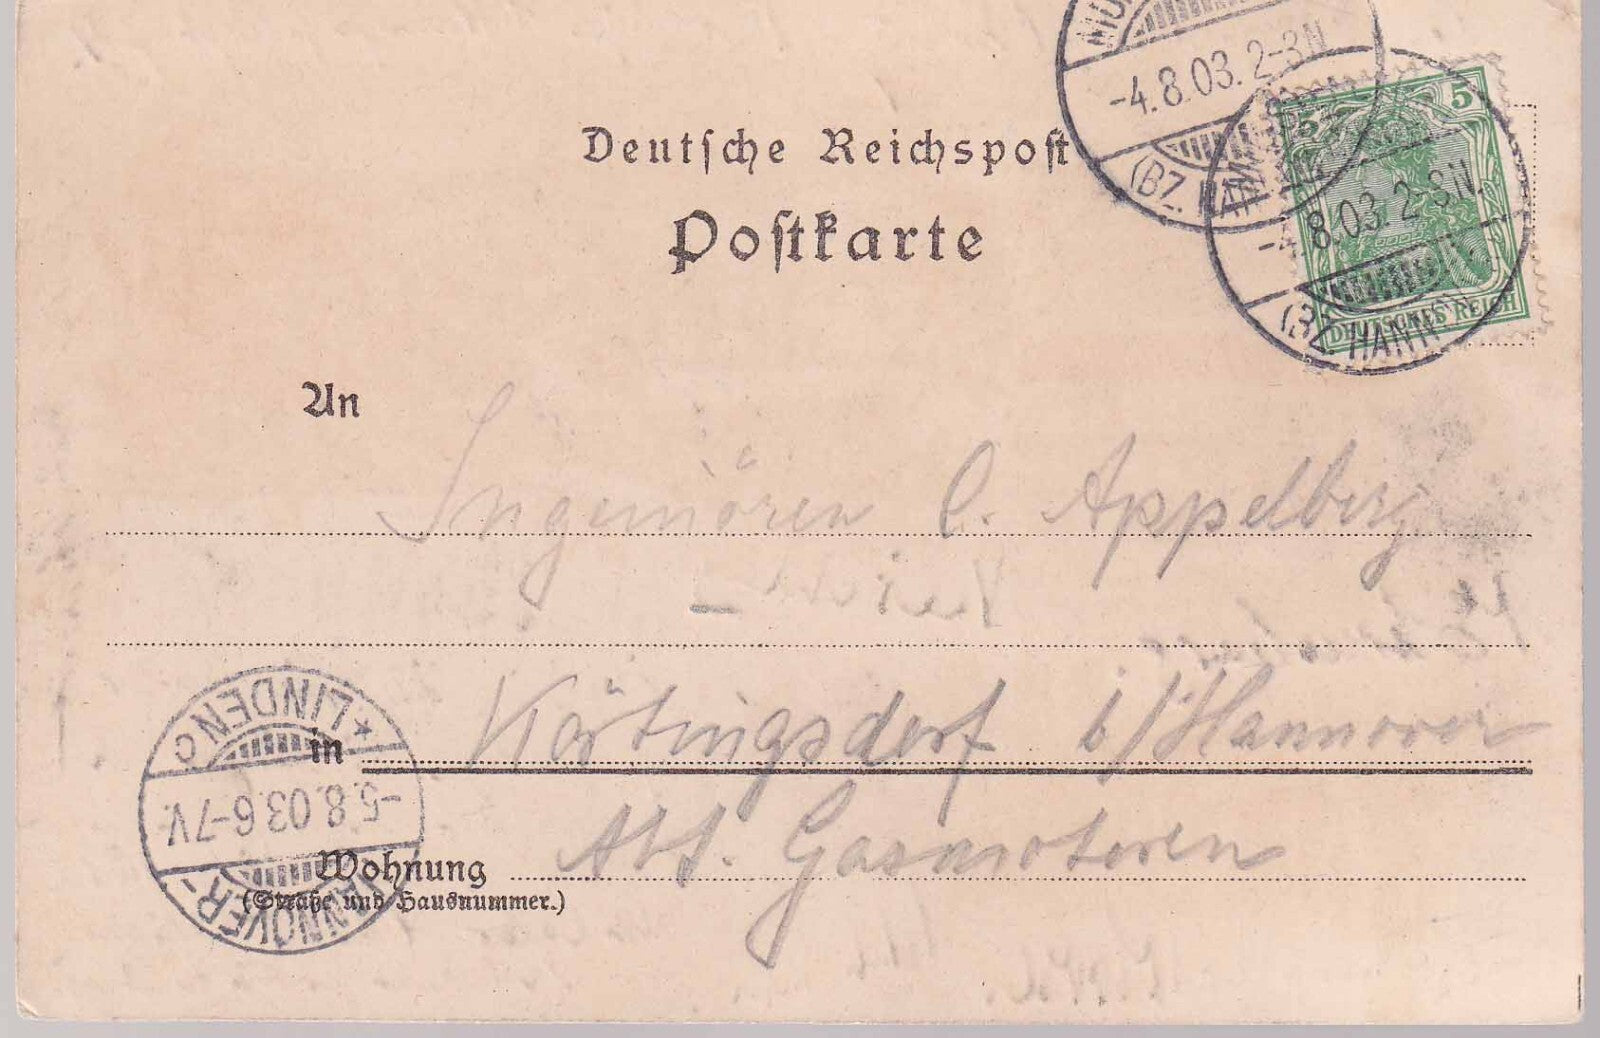 -4.8.03. 2-3N
(BZ. HAN
5 5
8.03. 2-3N.
DEUTSCHES REICH
(BZ. HANN
Deutsche Reichspost
Postkarte
An
Ingeniören C. Appelberg
in Körtingsdorf b/Hannover
Wohnung Abt. Gasmotoren
(Straße und Hausnummer.)
HANNOVER-
-5.8.03.6-7V.
*LINDEN C